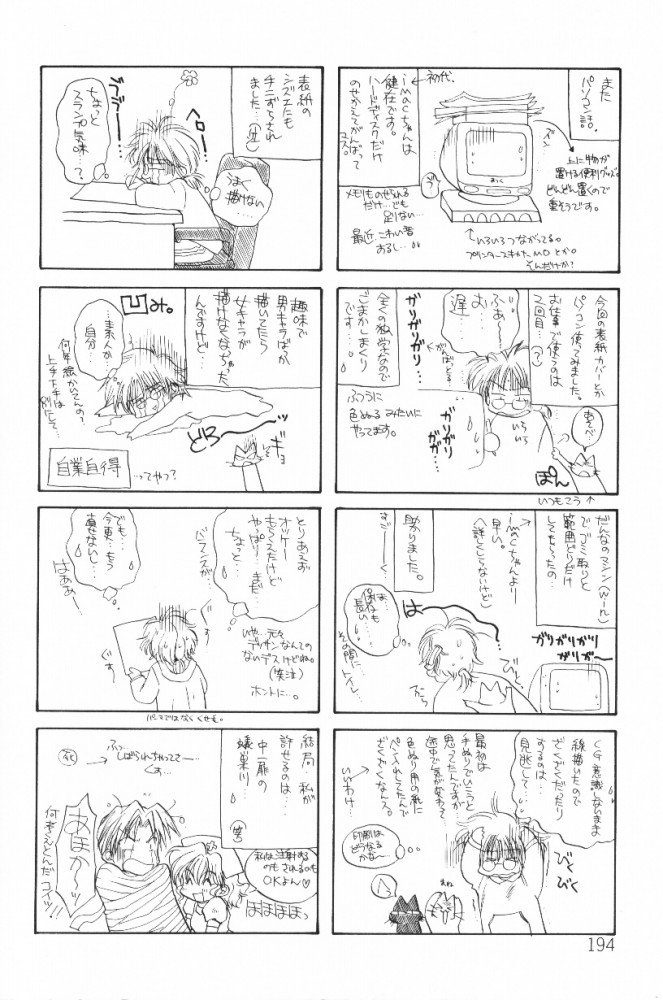 また
パソコン話。
初代。
imacちゃんは
健在です。
ハードディスクだけ
のせかえてがんばって
上に物が
置ける便利グッズ。
どんどん置くので
重そうです。
メモリものせれる
だけ…でも
足りない…
最近こわい音
いろいろつながってる。
プリンタースキャナMOとか。
そんだけか?
今回の表紙カバーとか
パソコン使ってみました。
お仕事で使うのは
2回目…(?)
ふぁ〜
お…
遅…
ガリガリガリ…
←がんばってる。
全くの独学なので
ごまかしまくり
です…
ふつうに
色ぬるみたいに
やってます。
ガリガリ
ガガ…
いろいろ
あそべ…
ぽん
いつもこう↑
だんなのマシン(Win)
でゴミ取りと
範囲どりだけ
してもらったの…
imacちゃんより
早い。
(詳しくしらないけど)
助かりました。
すご〜く
は…
保存も
長い…
その間にトイレ…
ガリガリガリ
ガリガ〜
CG意識しないまま
線描いたので
ざくざくだったり
するのは…
見逃して…
最初は
手ぬりでいこうと
思ってたんですが
途中で気が変わって
色ぬり用の紙に
ペン入れしてたんで
ざくざくなんス。
いいわけ
印刷は
どうなる
かな〜
びくびく
表紙の
シズエにも
てこずらされ
ました…(汗)
ちょっと
スランプ気味…?
ヘロー…
うまく
描けない…
趣味で
男キャラばっか
描いてたら
女キャラが
描けなくなっちゃった
んですけど…
凹み。
…素人か
自分…
何年絵かいてんの?
上手下手は
別にして
どろ〜〜ッ
ギョ
自業自得
…ってやつ?
とりあえず
オッケー
もらえたけど
やっぱり…まだ
ちょっと…
バランスが
でも…
今更…もう
直せないし…
はあぁー
ぐす
ぐす
いや…元々
デッサンなんての
ないデスけどね。
(笑泣)
ホントに…。
結局…私が
許せるのは
中一扉の
蟻巣川…
(笑)
ふっ…
しばられちゃってて…
くす…
私は注射する
のもされるのも
OKよん♡
ほほほほっ
あほか〜っ
何考えとんだコイツ!!
194